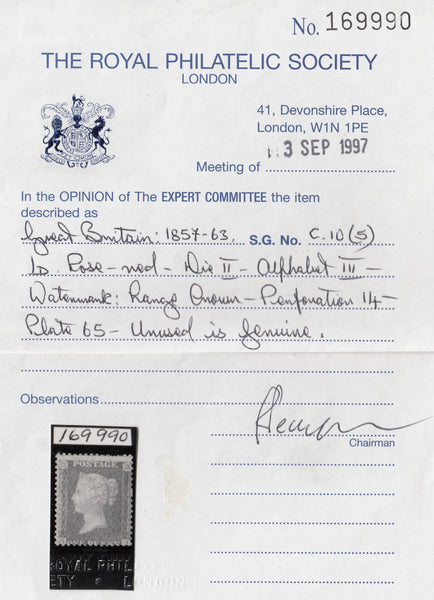 No. 169990
THE ROYAL PHILATELIC SOCIETY
LONDON
41, Devonshire Place,
London, W1N 1PE
Meeting of 3 SEP 1997
In the OPINION of The EXPERT COMMITTEE the item
described as
Great Britain: 1857-63. S.G. No. C.10(5)
1D. Rose-red - Die II - Alphabet III -
Watermark: Large Crown - Perforation 14 -
Plate 65 - Unused is genuine.
Observations
Chairman
169990
POSTAGE
ROYAL PHIL
ETY • LONDON